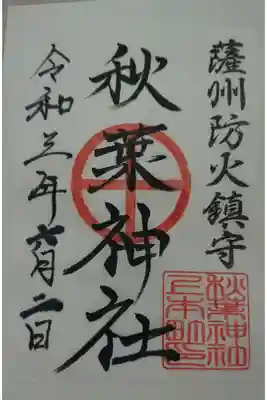 薩州防火鎮守
秋葉神社
令和三年六月二日
秋葉神社
上本町